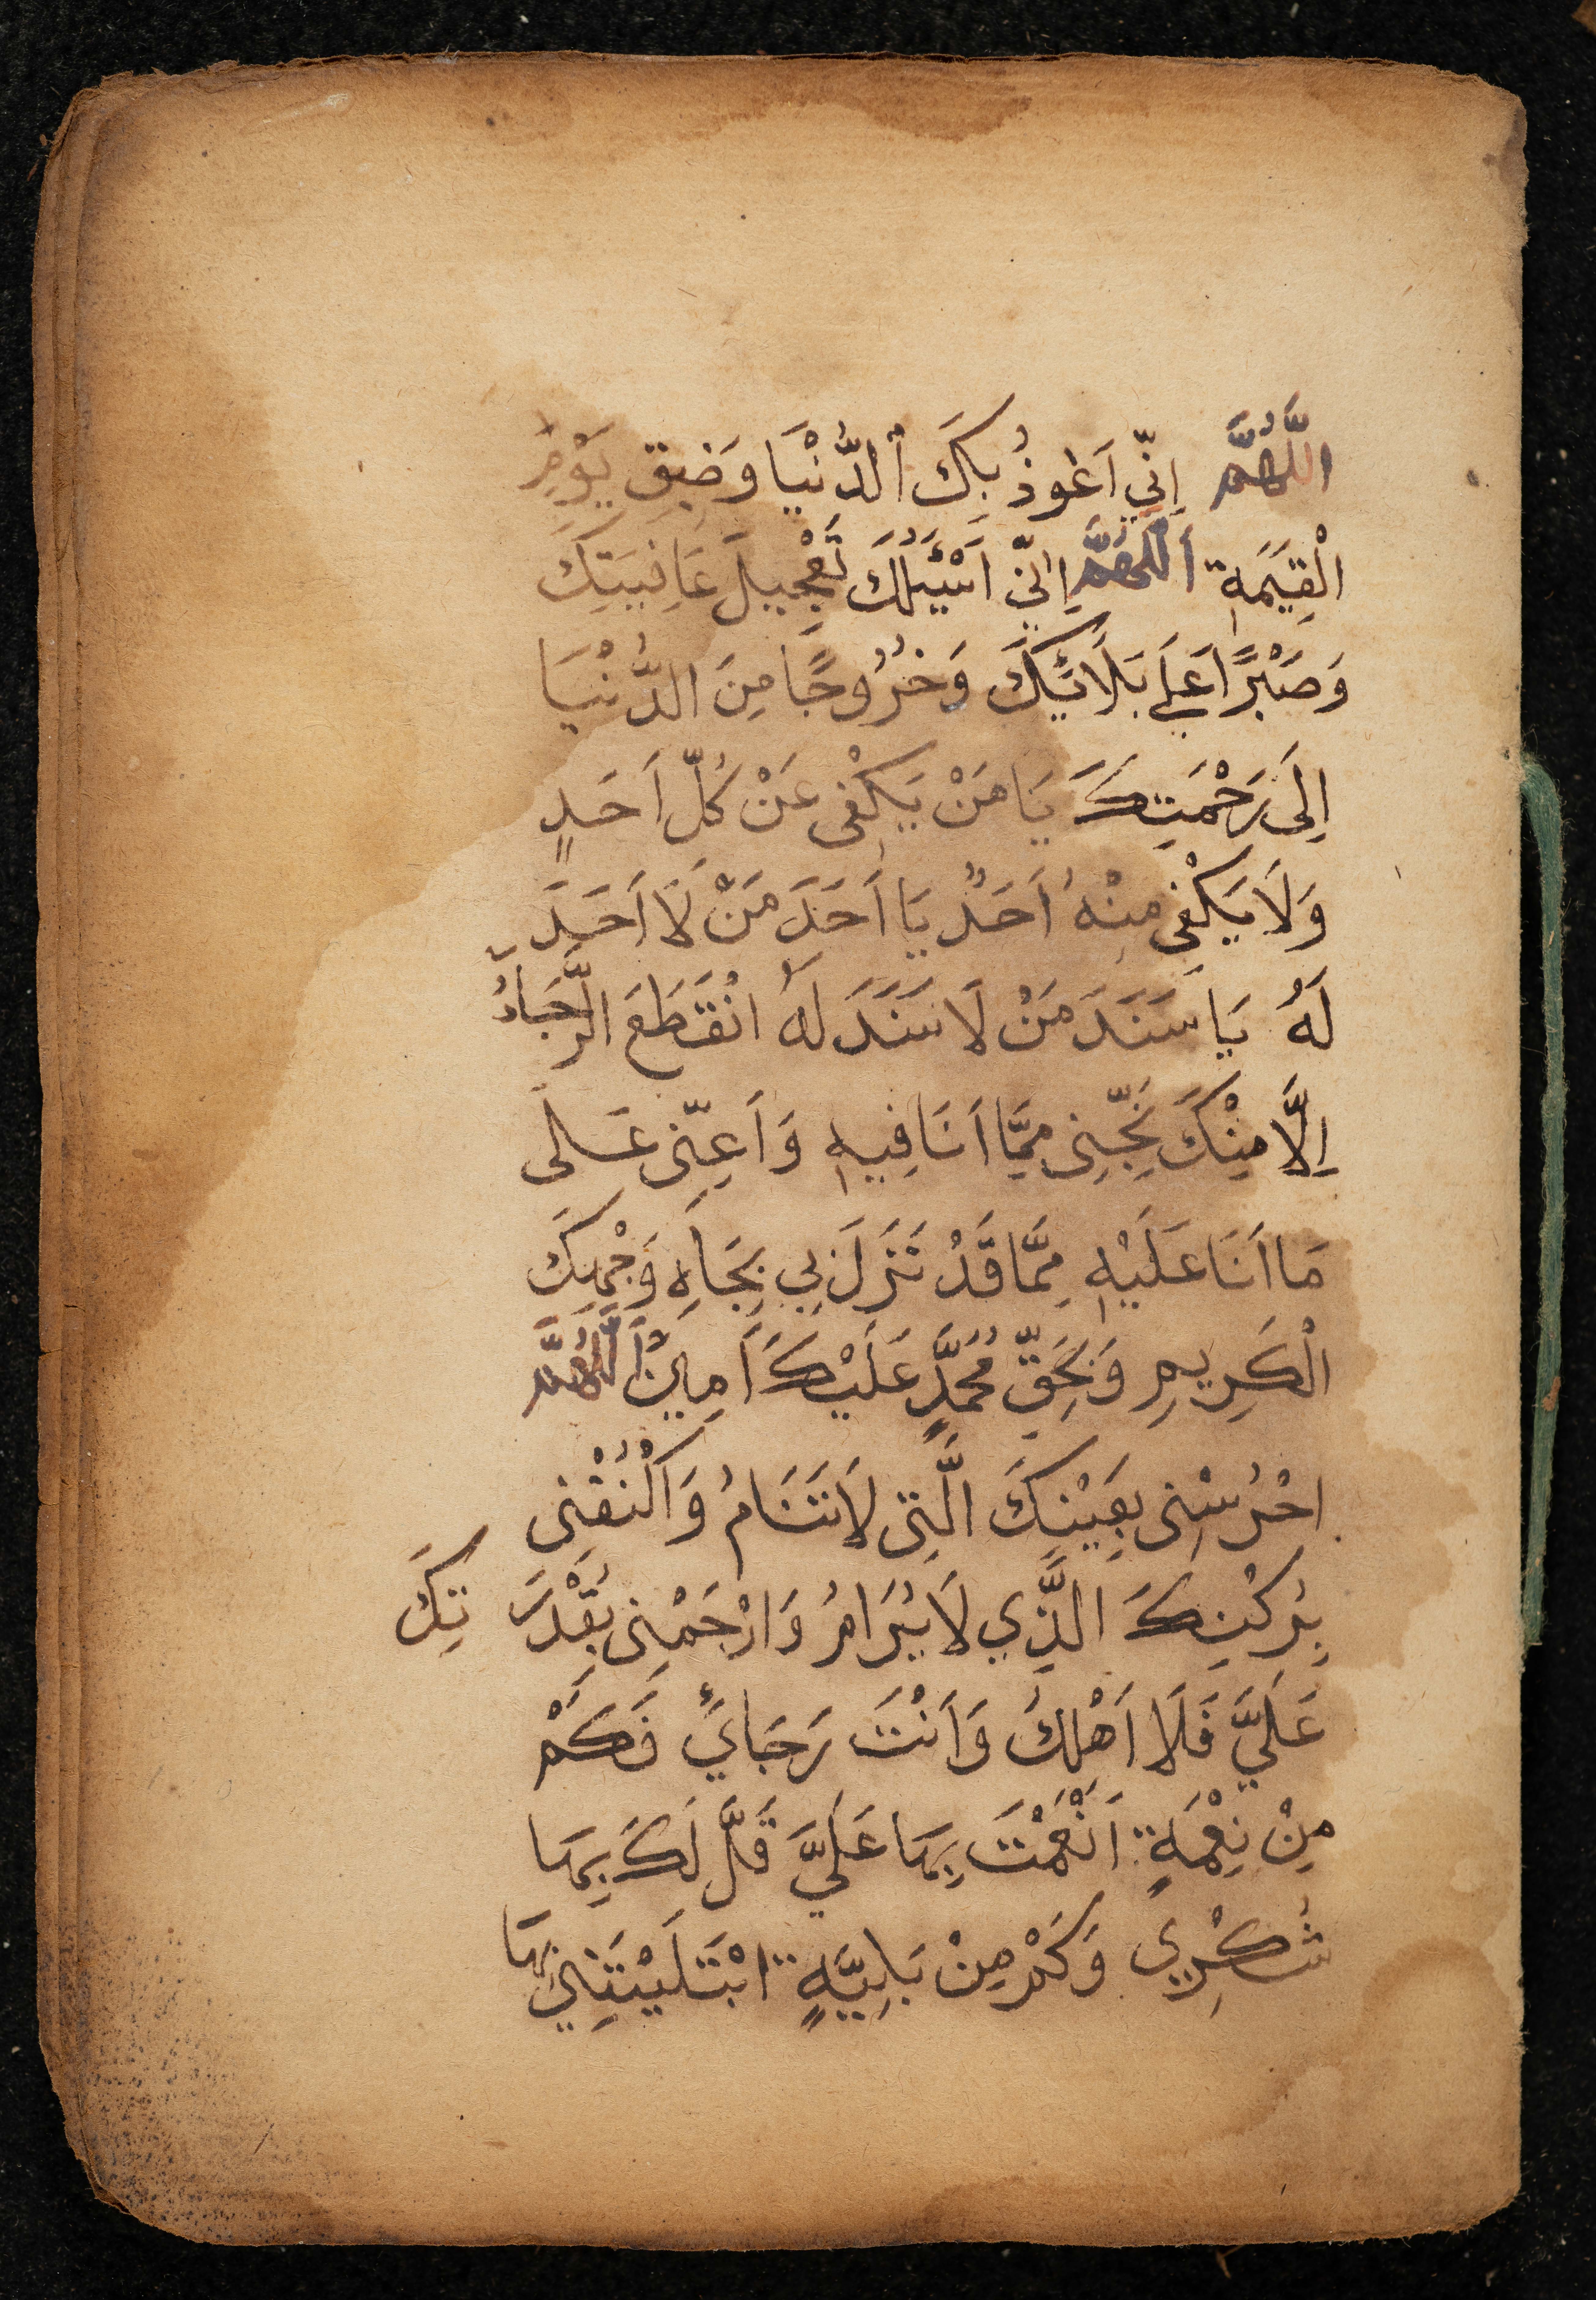 اَللّٰهُمَّ اِنِّي اَعُوذُ بِكَ اَلدُّنْيَا وَضِيقِ يَوْمِ
الْقِيَمَةِ اَللّٰهُمَّ اِنِّي اَسْئَلُكَ تَعْجِيلَ عَافِيَتِكَ
وَصَبْرًا عَلَى بَلَائِكَ وَخُرُوجًا مِنَ الدُّنْيَا
اِلَى رَحْمَتِكَ يَا مَنْ يَكْفِى عَنْ كُلِّ اَحَدٍ
وَلَا يَكْفِى مِنْهُ اَحَدٌ يَا اَحَدَ مَنْ لَا اَحَدَ
لَهُ يَا سَنَدَ مَنْ لَا سَنَدَ لَهُ انْقَطَعَ الرَّجَاءُ
اِلَّا مِنْكَ نَجِّنِى مِمَّا اَنَا فِيهِ وَاَعِنِّى عَلَى
مَا اَنَا عَلَيْهِ مِمَّا قَدْ نَزَلَ بِي بِجَاهِ وَجْهِكَ
الْكَرِيمِ وَبِحَقِّ مُحَمَّدٍ عَلَيْكَ اَمِينْ اَللّٰهُمَّ
احْرُسْنِى بِعَيْنِكَ الَّتِى لَا تَنَامُ وَاَكْنُفْنِى
بِرُكْنِكَ الَّذِي لَا يُرَامُ وَارْحَمْنِى بِقُدْرَتِكَ
عَلَيَّ فَلَا اَهْلِكُ وَاَنْتَ رَجَائِي فَكَمْ
مِنْ نِعْمَةٍ اَنْعَمْتَ بِهَا عَلَيَّ قَلَّ لَكَ بِهَا
شُكْرِي وَكَمْ مِنْ بَلِيَّةٍ ابْتَلَيْتَنِي بِهَا